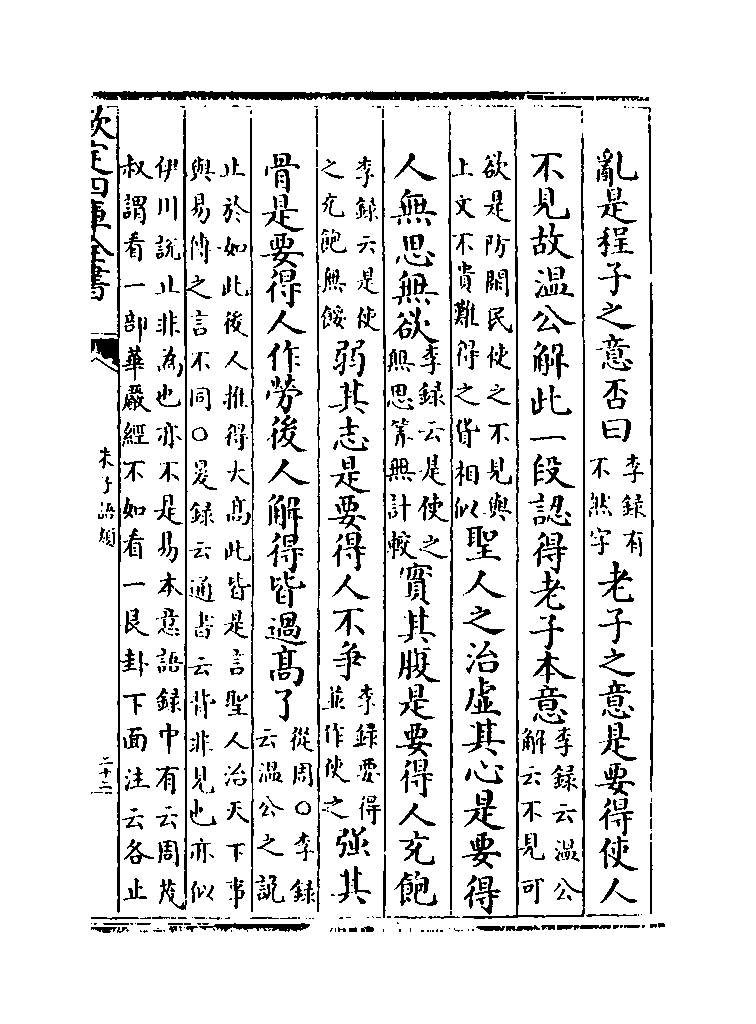 亂是程子之意否曰李録有不然字老子之意是要得使人
不見故温公解此一段認得老子本意李録云温公解云不見可
欲是防閑民使之不見與上文不貴難得之貨相似聖人之治虚其心是要得
人無思無欲李録云是使之無思筭無計較實其腹是要得人充飽
李録云是使之充飽無餒弱其志是要得人不争李録要得並作使之强其
骨是要得人作勞後人解得皆過高了從周○李録云温公之說
止於如此後人推得大高此皆是言聖人治天下事
與易傳之言不同○㬊録云通書云背非見也亦似
伊川說止非為也亦不是易本意語録中有云周茂
叔謂看一部華嚴經不如看一艮卦下面注云各止
欽定四庫全書
朱子語類
二十二